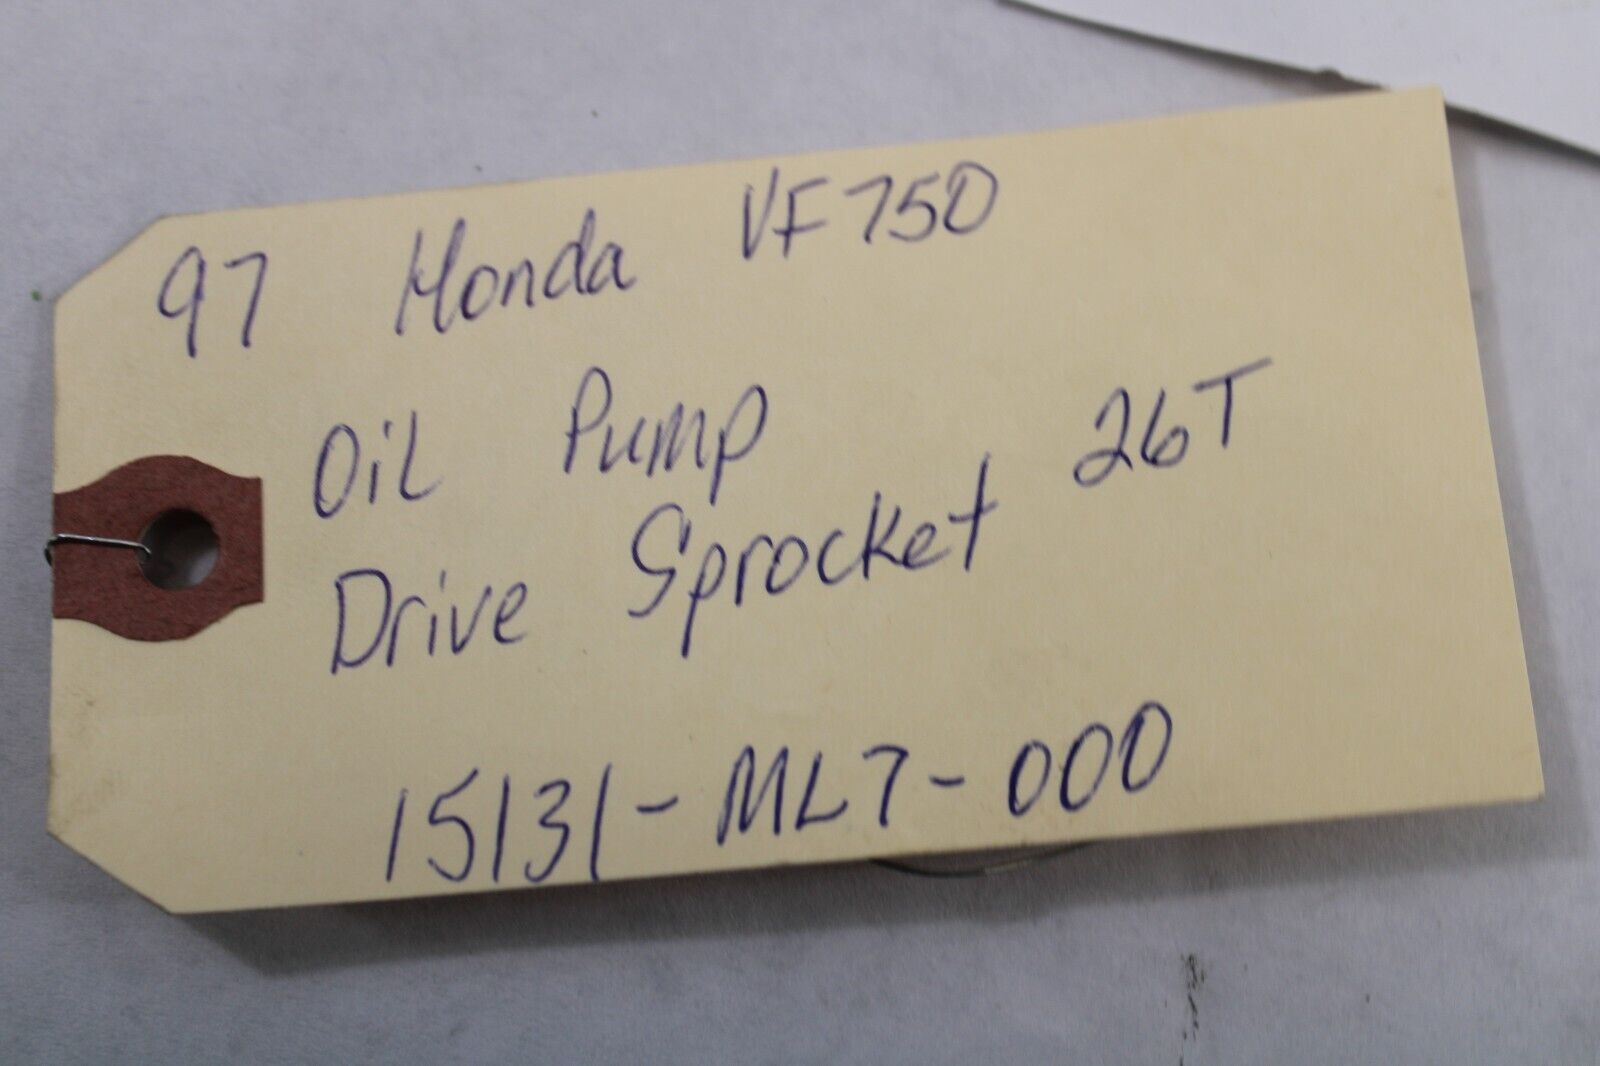 97 Honda VF750
Oil Pump
Drive Sprocket 26T
15131-ML7-000